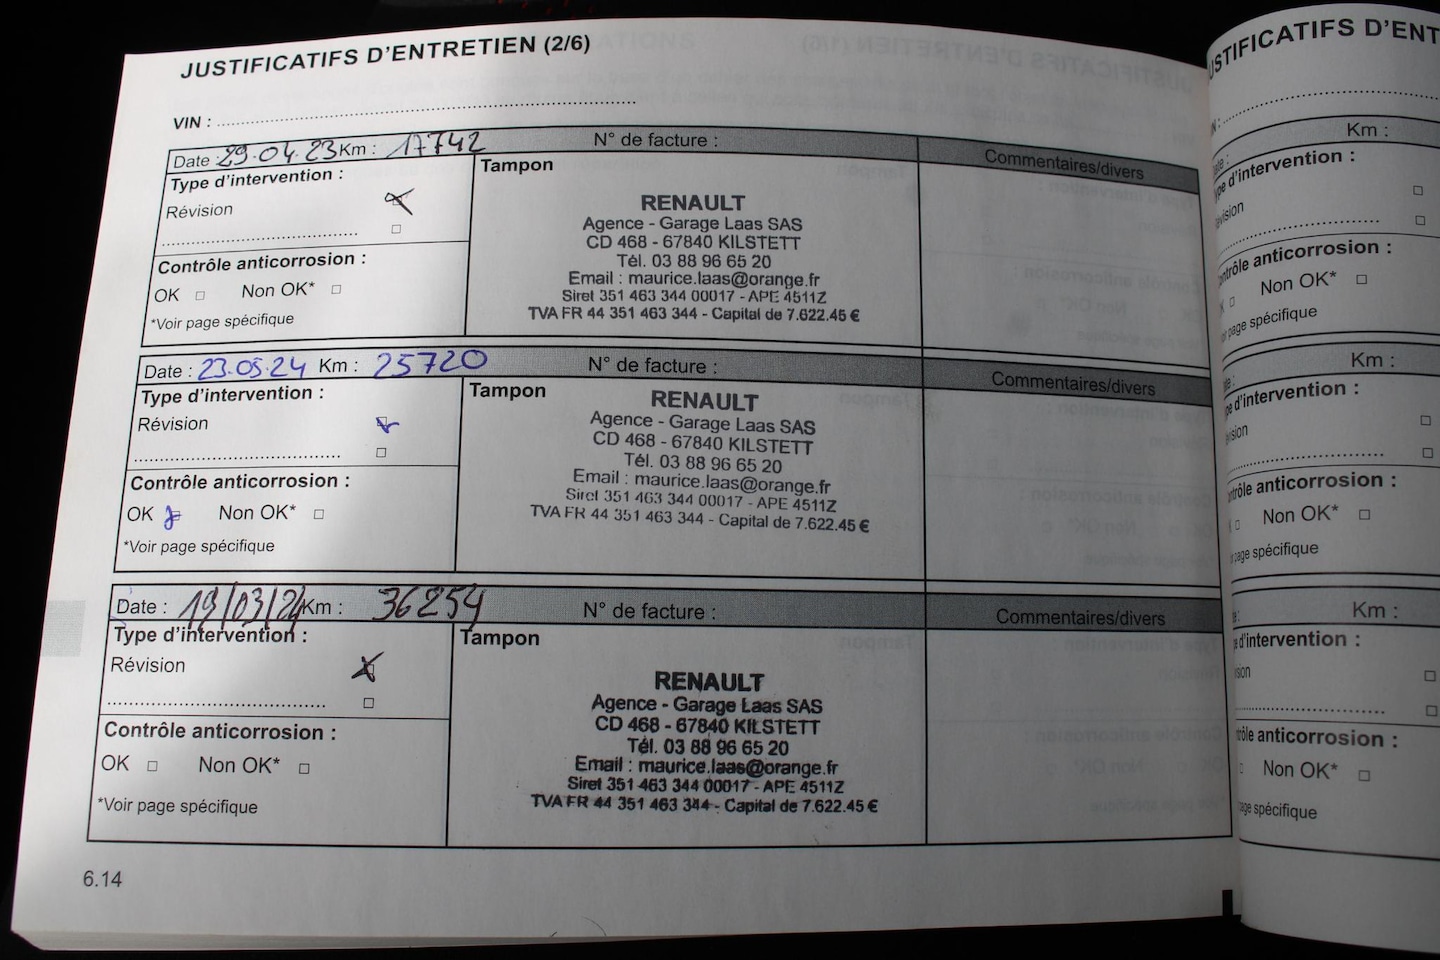 JUSTIFICATIFS D'ENTRETIEN (2/6)
VIN : ..........
Date : 29.04.23 Km : 17742 N° de facture : Commentaires/divers
Type d'intervention :
Révision
Tampon
RENAULT
Agence - Garage Laas SAS
CD 468 - 67840 KILSTETT
Tél. 03 88 96 65 20
Email : maurice.laas@orange.fr
Siret 351 463 344 00017 - APE 4511Z
TVA FR 44 351 463 344 - Capital de 7.622.45 €
Contrôle anticorrosion :
OK □ Non OK* □
*Voir page spécifique
Date : 23.05.24 Km : 25720 N° de facture : Commentaires/divers
Type d'intervention :
Révision
Tampon
RENAULT
Agence - Garage Laas SAS
CD 468 - 67840 KILSTETT
Tél. 03 88 96 65 20
Email : maurice.laas@orange.fr
Siret 351 463 344 00017 - APE 4511Z
TVA FR 44 351 463 344 - Capital de 7.622.45 €
Contrôle anticorrosion :
OK Non OK* □
*Voir page spécifique
Date : 19/03/24 Km : 36254 N° de facture : Commentaires/divers
Type d'intervention :
Révision
Tampon
RENAULT
Agence - Garage Laas SAS
CD 468 - 67840 KILSTETT
Tél. 03 88 96 65 20
Email : maurice.laas@orange.fr
Siret 351 463 344 00017 - APE 4511Z
TVA FR 44 351 463 344 - Capital de 7.622.45 €
Contrôle anticorrosion :
OK □ Non OK* □
*Voir page spécifique
6.14
JUSTIFICATIFS D'ENT
Km :
d'intervention :
Contrôle anticorrosion :
Non OK* □
page spécifique
Km :
d'intervention :
anticorrosion :
Non OK* □
page spécifique
Km :
d'intervention :
anticorrosion :
Non OK* □
page spécifique